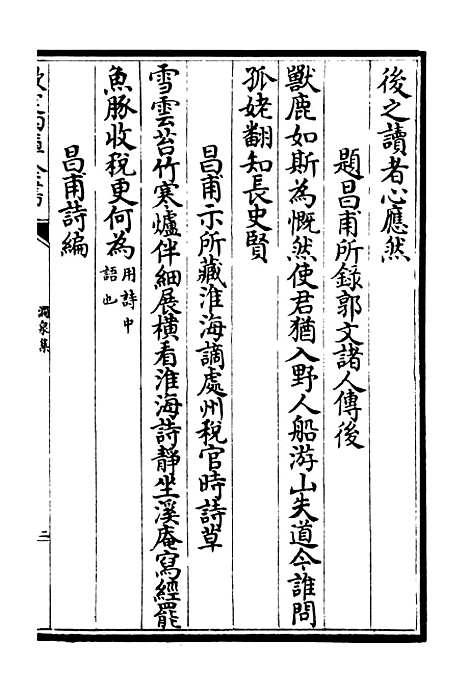 後之讀者心應然
題昌甫所錄郭文諸人傳後
獸鹿如斯為慨然使君猶入野人船游山失道今誰問
孤姥翻知長史賢
昌甫示所藏淮海謫處州稅官時詩草
雪雲苔竹寒爐伴細展橫看淮海詩靜坐溪庵寫經罷
魚豚收稅更何為用詩中語也
昌甫詩編
澗泉集
二